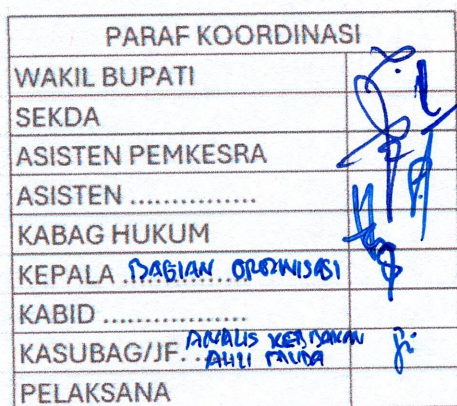 PARAF KOORDINASI
WAKIL BUPATI
SEKDA
ASISTEN PEMKESRA
ASISTEN ...............
KABAG HUKUM
KEPALA BAGIAN ORGANISASI
KABID .................
KASUBAG/JF. ANALIS KEBIJAKAN
AHLI MUDA
PELAKSANA